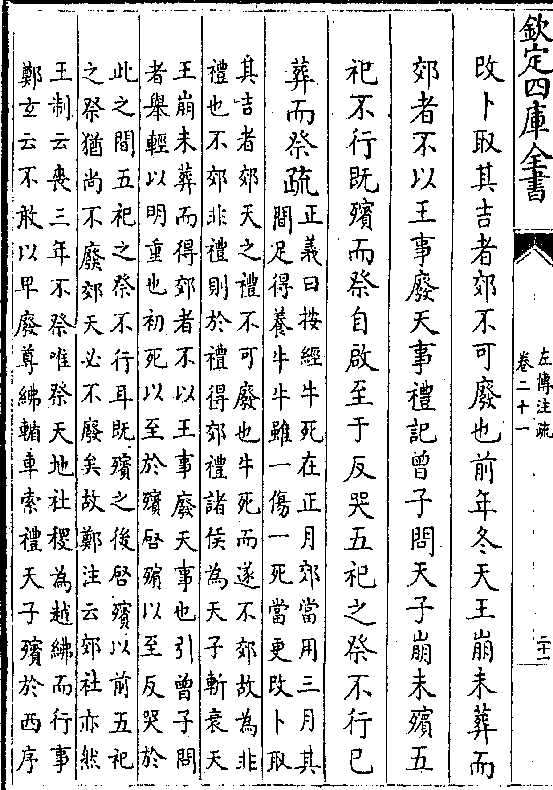 欽定四庫全書
左傳注疏
卷二十一
二十一
改卜取其吉者郊不可廢也前年冬天王崩未葬而
郊者不以王事廢天事禮記曾子問天子崩未殯五
祀不行既殯而祭自啟至于反哭五祀之祭不行已
葬而祭疏
正義曰按經牛死在正月郊當用三月其
間足得養牛牛雖一傷一死當更改卜取
其吉者郊天之禮不可廢也牛死而遂不郊故為非
禮也不郊非禮則於禮得郊禮諸侯為天子斬衰天
王崩未葬而得郊者不以王事廢天事也引曾子問
者舉輕以明重也初死以至於殯啓殯以至反哭於
此之間五祀之祭不行耳既殯之後啓殯以前五祀
之祭猶尚不廢郊天必不廢矣故鄭注云郊社亦然
王制云喪三年不祭唯祭天地社稷為越紼而行事
鄭玄云不敢以卑廢尊紼輴車索禮天子殯於西序